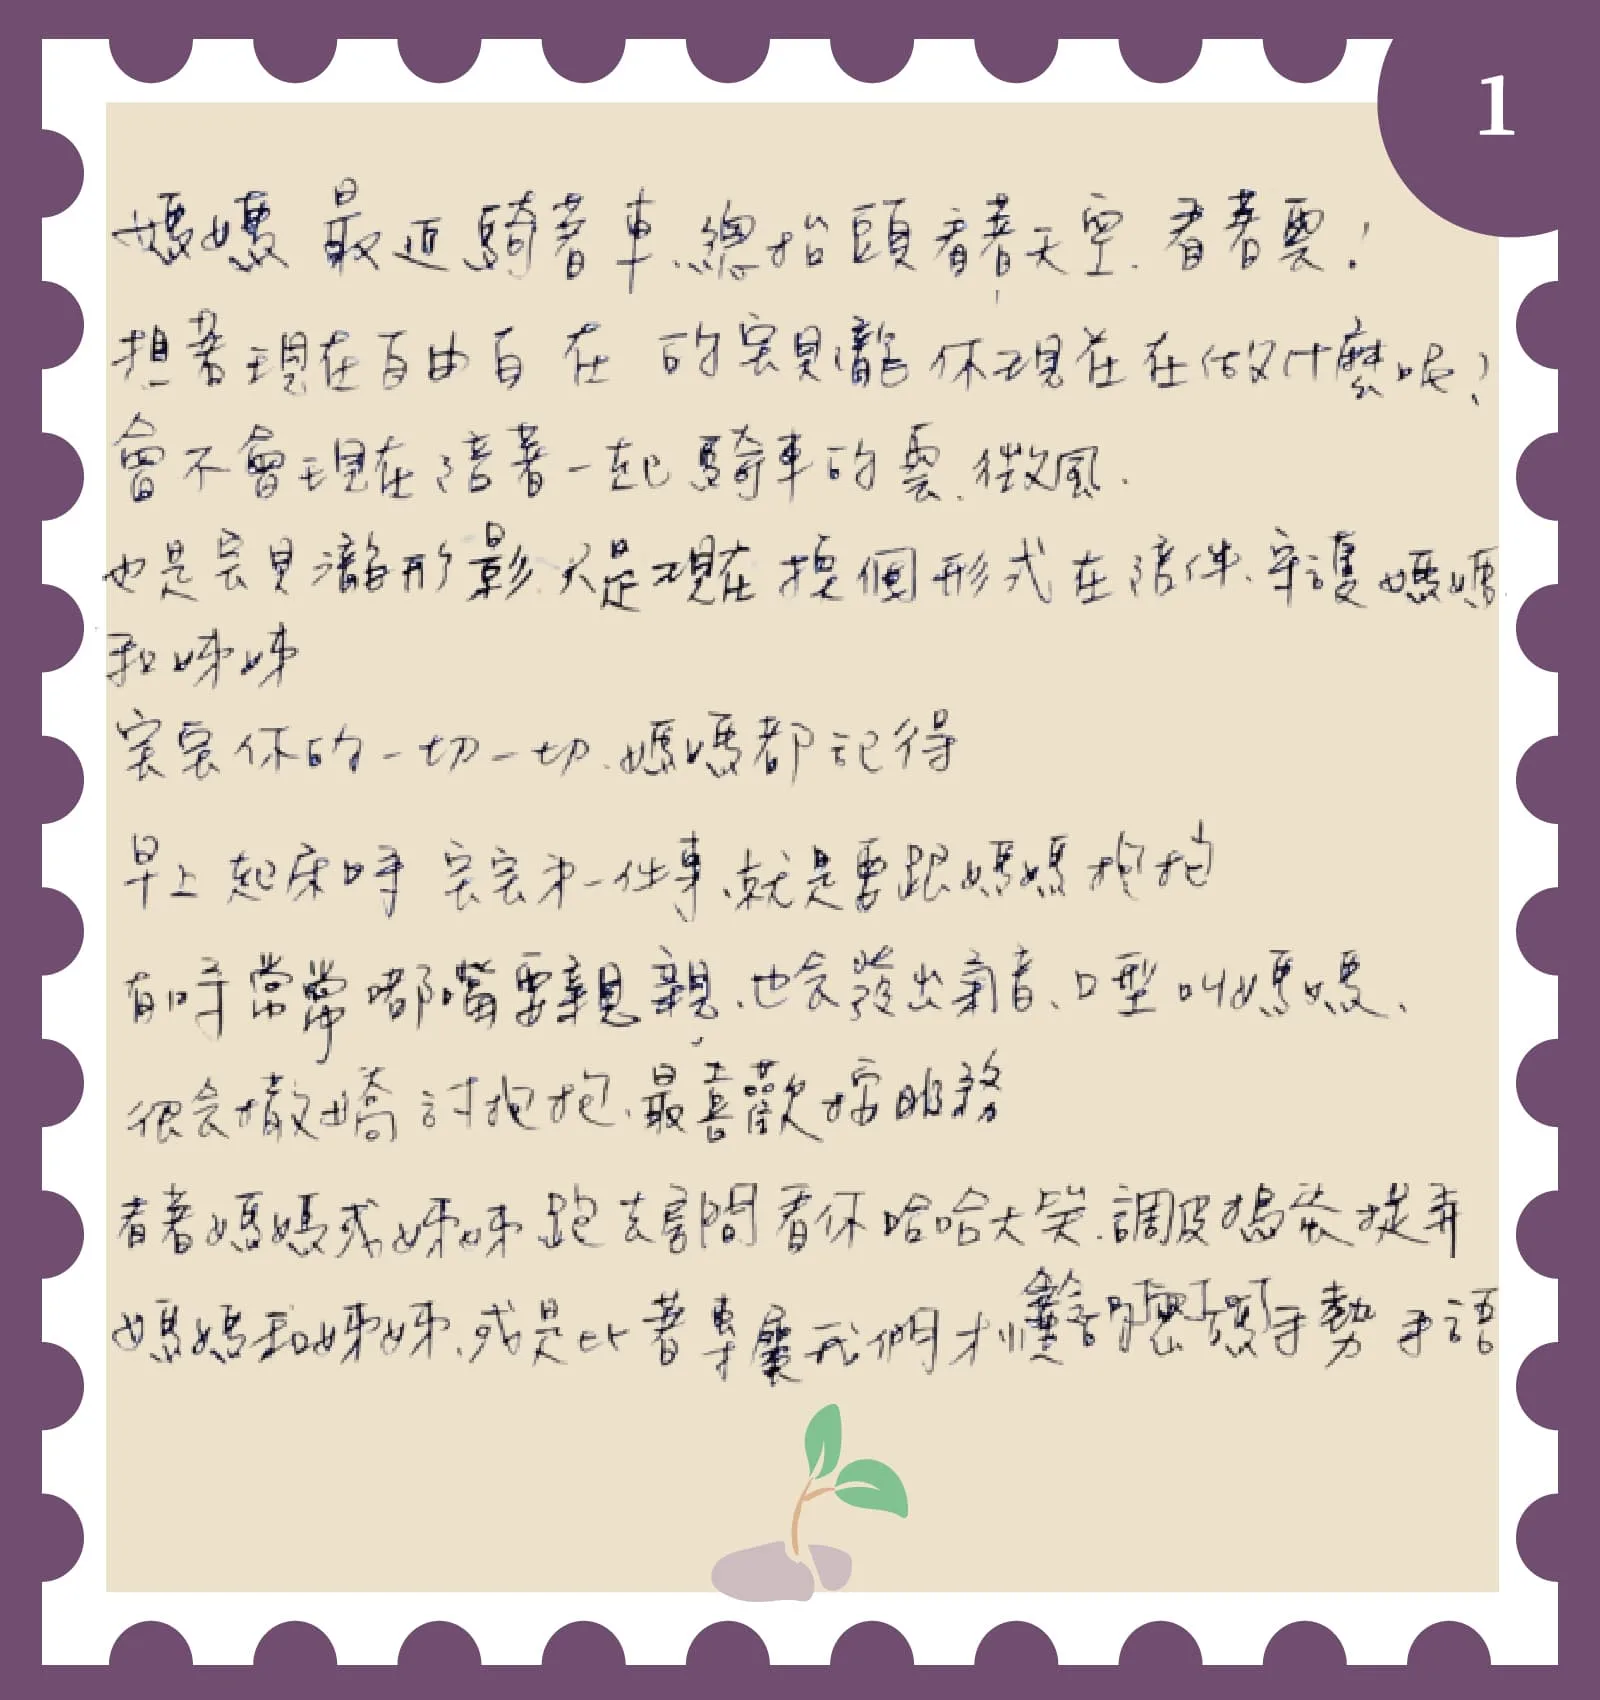 1
媽媽 最近騎著車、總抬頭看著天空、看著雲!
想著現在自由自在 的宝貝瀧 你現在在做什麼呢?
會不會現在陪著一起騎車的雲、微風、
也是宝貝瀧形影、只是現在換個形式在陪伴、守護媽媽
和姊姊
宝宝你的一切一切、媽媽都記得
早上 起床時 宝宝第一件事、就是要跟媽媽抱抱
有時常常嘟嘴要親親、也会發出氣音、口型叫媽媽、
很会撒嬌討抱抱、最喜歡按服務
看著媽媽或姊姊跑去房間看你哈哈大笑、調皮搗蛋捉弄
媽媽和姊姊、或是比著專屬我們才懂 手勢 手語